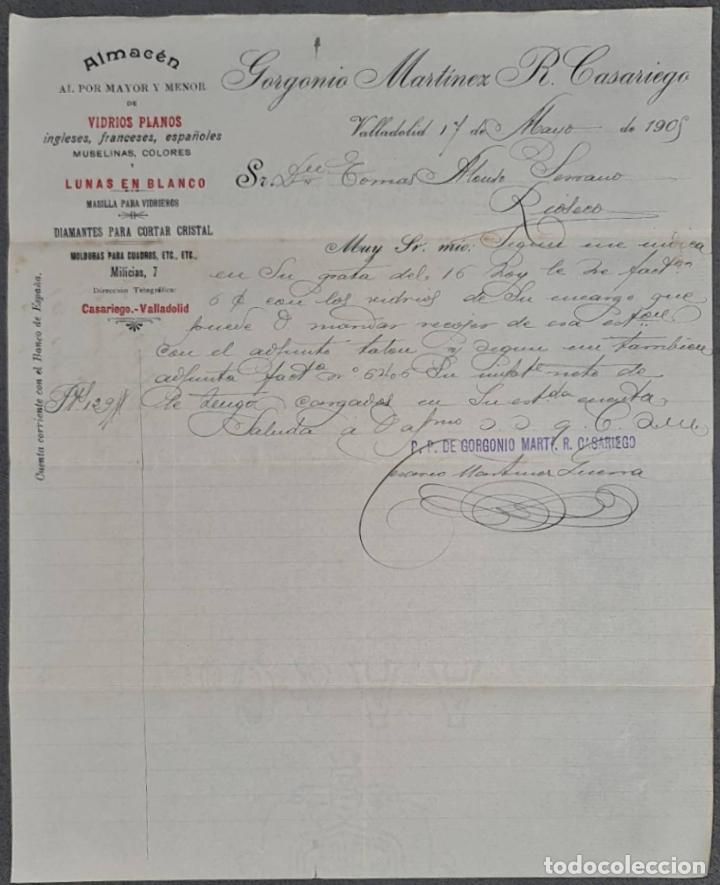 Almacén
AL POR MAYOR Y MENOR
DE
VIDRIOS PLANOS
ingleses, franceses, españoles
MUSELINAS, COLORES
Y
LUNAS EN BLANCO
MASILLA PARA VIDRIEROS
DIAMANTES PARA CORTAR CRISTAL
MOLDURAS PARA CUADROS, ETC., ETC.
Milicias, 7
Dirección Telegráfica:
Casariego.-Valladolid
Cuenta corriente con el Banco de España.
Gorgonio Martínez R. Casariego
Valladolid 17 de Mayo de 1905
Sr. Dn Tomas Alonso Serrano
Rioseco
Muy Sr. mío: Segun me indica
en Su grata del 16 hoy le he factdo
6 con los vidrios de Su encargo que
puede V. mandar recoger de esa eston
con el adjunto talon y segun en tambien
adjunta facta nº 6206 Su neto de
Pts 129 le tengo cargadas en Su estda cuenta
Saluda a V afmo S. S. q. b. s. m.
P. P. DE GORGONIO MARTZ. R. CASARIEGO
Martinez Guerra
todocoleccion.net